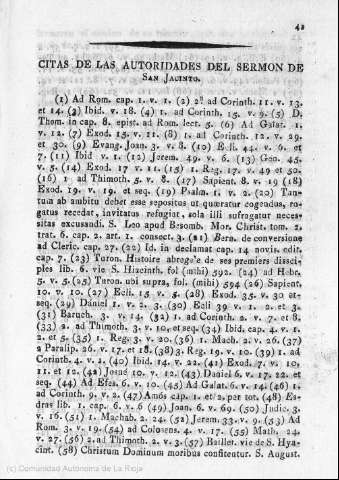 41
CITAS DE LAS AUTORIDADES DEL SERMON DE
SAN JACINTO.
(1) Ad Rom. cap. 1. v. 1. (2) 2.ª ad Corinth. 11. v. 13.
et 14. (3) Ibid. v. 18. (4) 1. ad Corinth. 15. v. 9. (5) D.
Thom. in cap. 8. epist. ad Rom. lect. 5. (6) Ad Galat. 1.
v. 12. (7) Exod. 15. v. 11. (8) 1. ad Corinth. 12. v. 29.
et 30. (9) Evang. Joan. 3. v. 8. (10) Eclî. 44. v. 6. et
7. (11) Ibid v. 1. (12) Jerem. 49. v. 6. (13) Gen. 45.
v. 5. (14) Exod 17 v. 11. (15) 1. Reg. 17. v. 49 et 50.
(16) 1 ad Thimoth. 5. v. 8. (17) Sapient. 8. v. 19 (18)
Exod. 19. v. 19. et seq. (19) Psalm. 11. v. 2. (20) Tan-
tum ab ambitu debet esse sepositus ut quæratur cogendus, ro-
gatus recedat, invitatus refugiat, sola illi sufragatur neces-
sitas excusandi. S. Leo apud Besomb. Mor. Christ. tom. 2.
trat. 6. cap. 2. art. 1. consect. 3. (21) Bern. de conversione
ad Cleric. cap. 27. (22) Id. in declamat cap. 14 novis. edit.
cap. 7. (23) Turon. Histoire abrege'e de ses premiers disci-
ples lib. 6. vie S. Hiacinth. fol (mihi) 592. (24) ad Hebr.
5. v. 5. (25) Turon. ubi supra, fol. (mihi) 594 (26) Sapient.
10. v. 10. (27) Eclî. 15. v. 5. (28) Exod. 35. v. 30 et-
seq. (29) Daniel 1. v. 2. 3. (30) Eclî 39 v. 1. 2. et 3.
(31) Baruch. 3. v. 14. (32) 1. ad Corinth. 2. v. 7. et 8.
(33) 2. ad Thimoth. 3. v. 10. et seq. (34) Ibid. cap. 4. v. 1.
2. et 5. (35) 1. Reg. 3. v. 20. (36) 1. Mach. 2. v. 26. (37)
2 Paralip. 26. v. 17. et 18. (38) 3. Reg. 19. v. 10. (39) 1. ad
Corinth. 4. v. 1. (40) Ibid. 14. v. 22. (41) Exod. 7. v. 10.
11. et 12. (42) Josué 10. v. 12. (43) Daniel 6. v. 17. 22. et
seq. (44) Ad Efes. 6. v. 10. (45) Ad Galat. 6. v. 14. (46) 1.
ad Corinth. 9. v. 2. (47) Amós cap. 1. et 2. per tot. (48) Es-
dras lib. 1. cap. 6. v. 6 (49) Joan. 6. v. 69. (50) Judic. 3.
v. 16. (51) 1. Machab. 2. 24. (52) Jerem. 33. v. 9. (53) Ad
Rom. 3. v. 19. (54) ad Colosens. 4. v. 17. (55) Math. 24.
v. 27. (56) 2. ad Thimoth. 2. v. 3. (57) Baillet. vie de S. Hya-
cint. (58) Christum Dominum moribus confitentur. S. August.
(c) Comunidad Autónoma de La Rioja